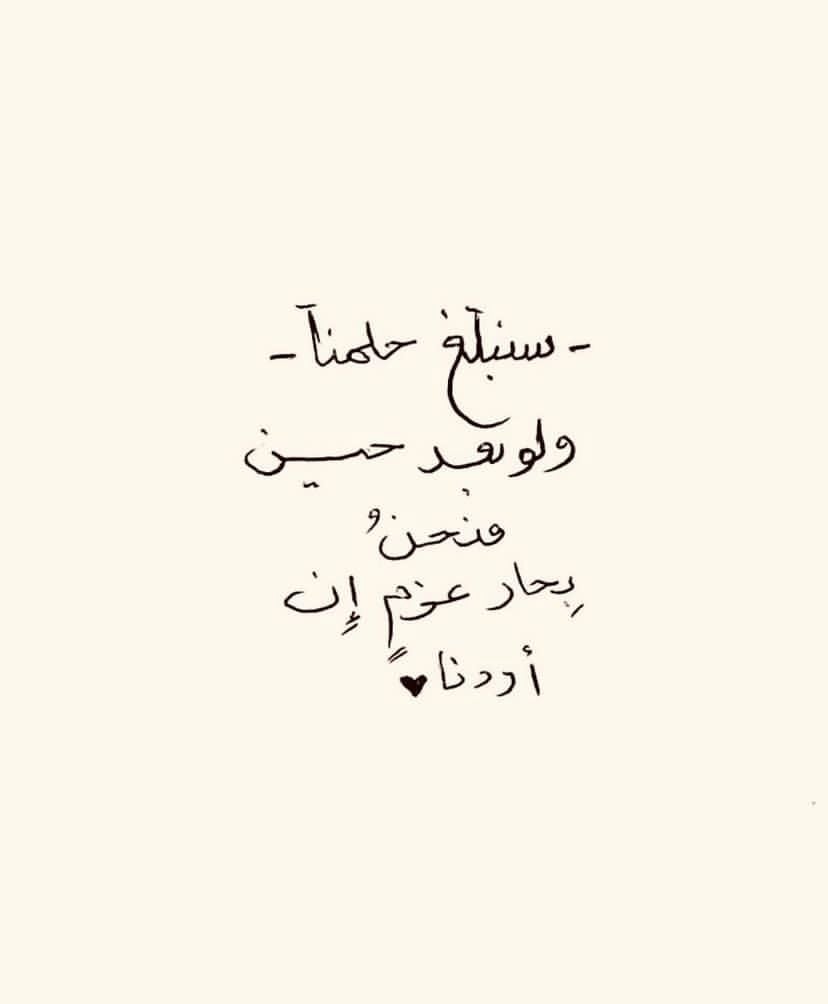 - سنبلغ حلمنآ -
ولو بعد حين
فنحنُ
بِحار عزمٍ إن
أردنا♥